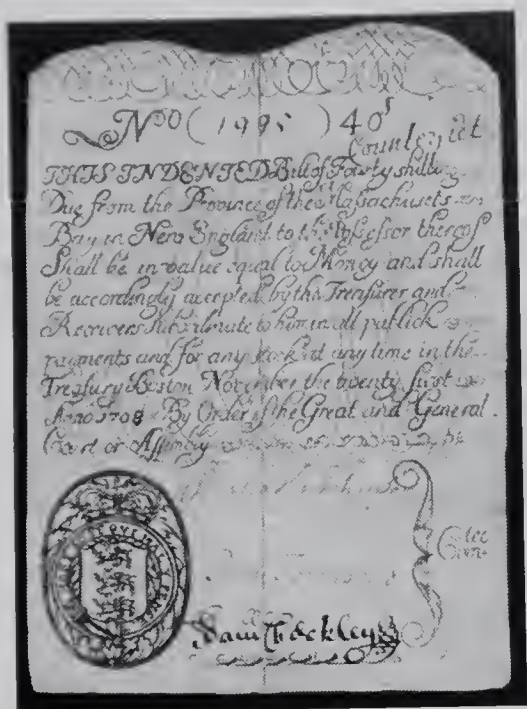 No ( 1995 ) 40s
Counterfeit
THIS INDENTED Bill of Fourty shillings
Due from the Province of the Massachusets
Bay in New England to the Possessor thereof
Shall be in value equal to Money and shall
be accordingly accepted by the Treasurer and
Receivers Subordinate to him in all publick
payments and for any Stock at any time in the
Treasury Boston November the twenty first
Anno 1708 By Order of the Great and General
Court or Assembly
Com